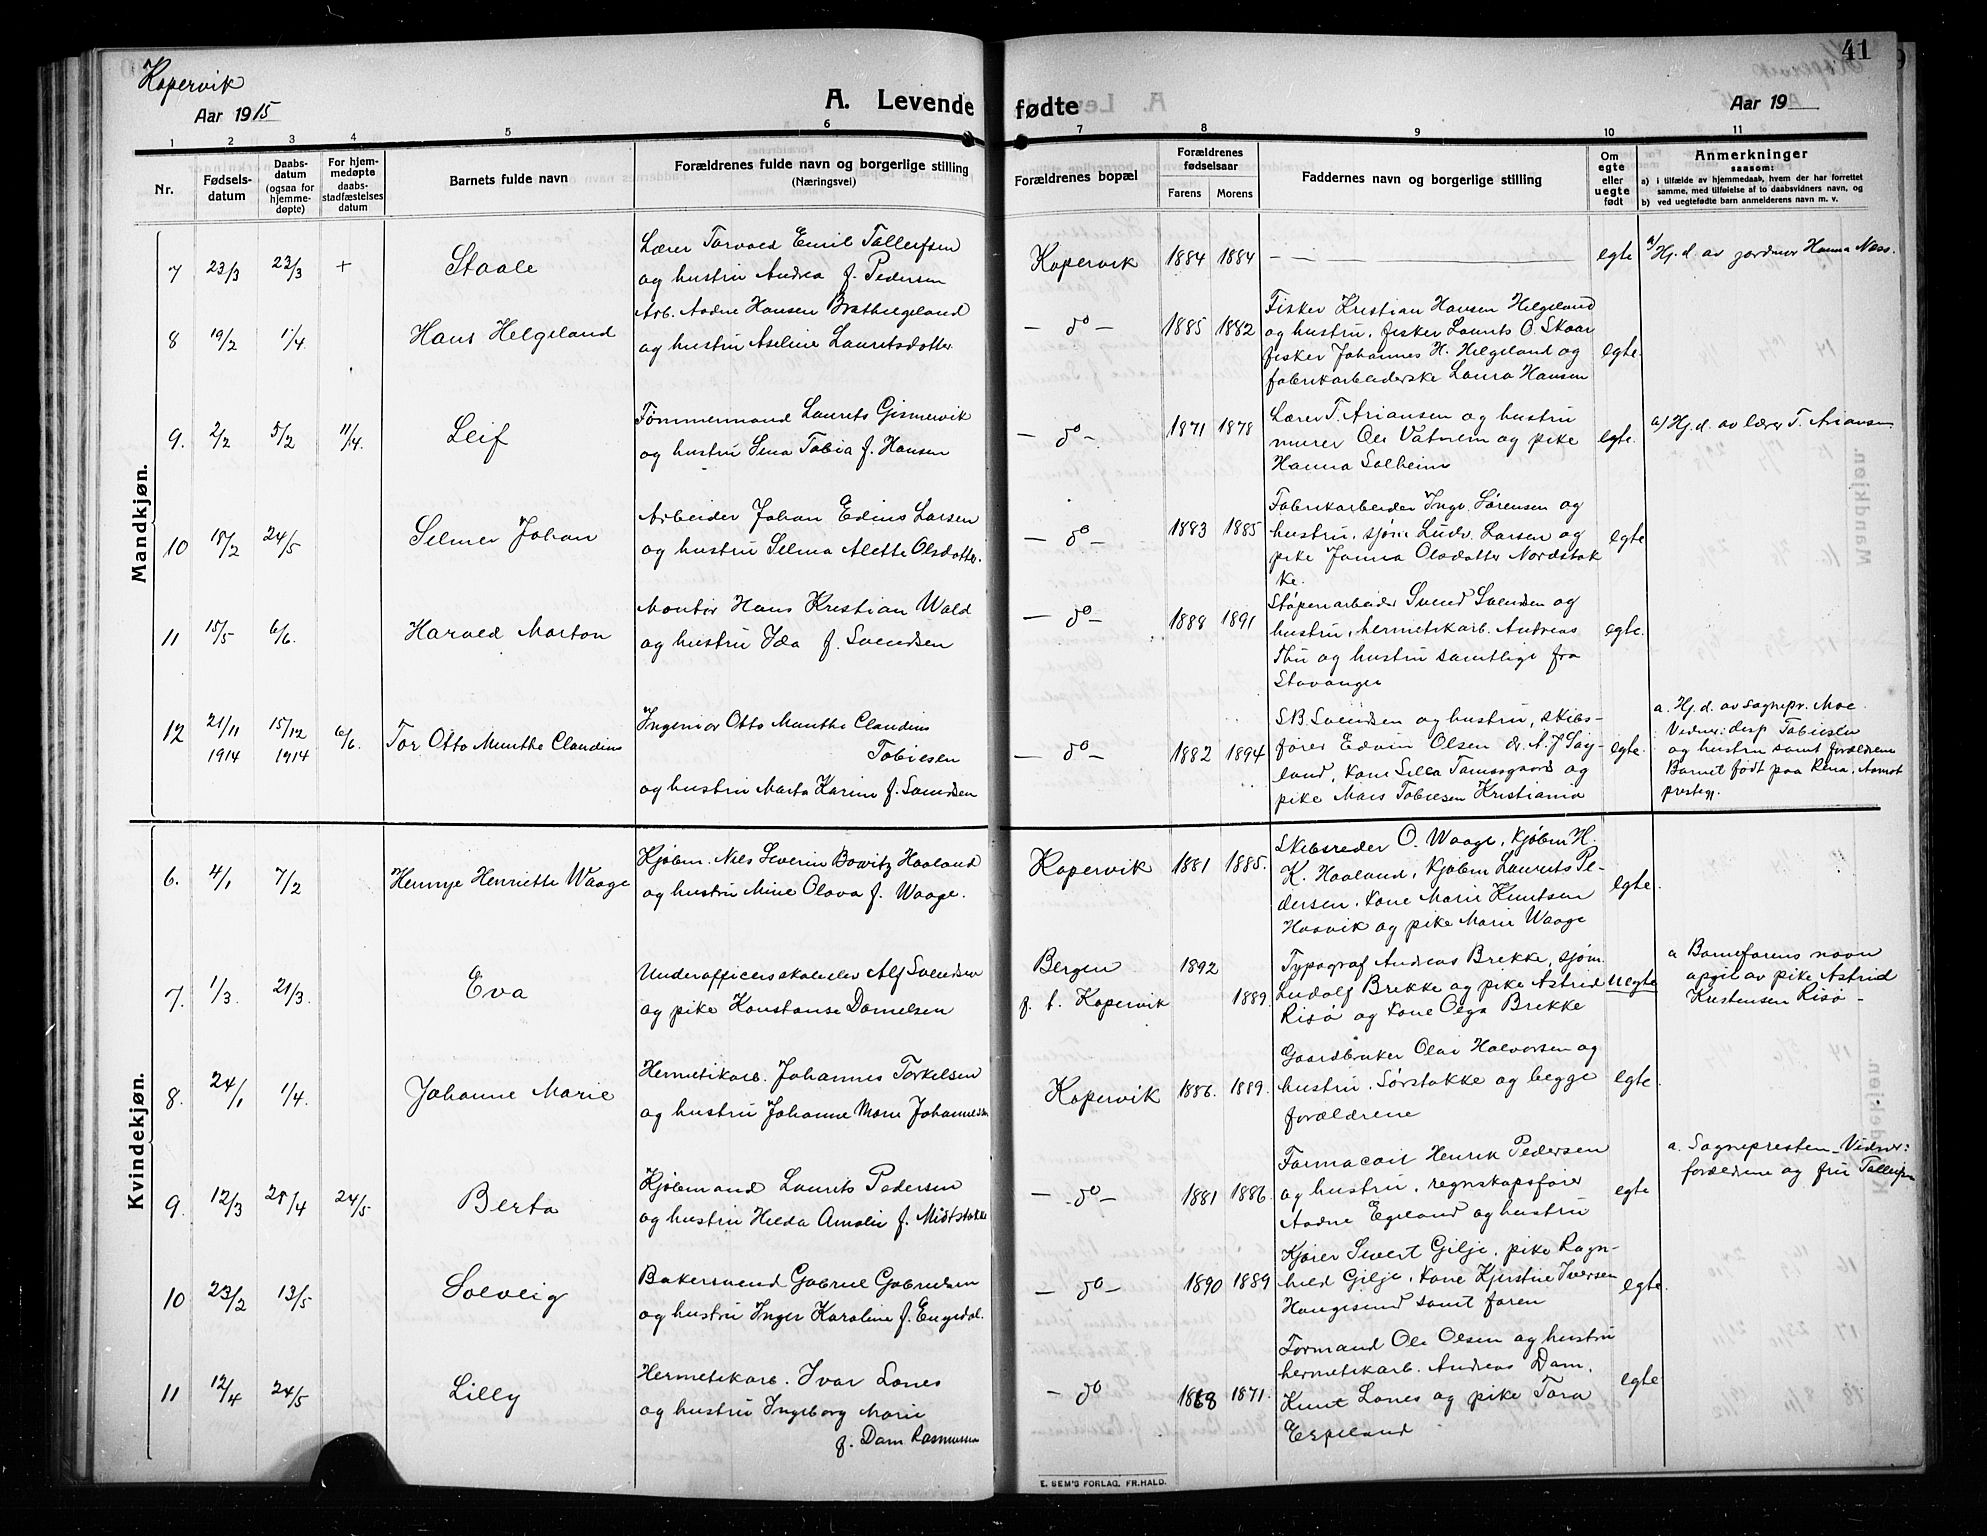 Kopervik
Aar 1915
A. Levende fødte
Aar 19
41
1 2 3 4 5 6 7 8 9 10 11
Nr.
Fødsels-
datum
Daabs-
datum
(ogsaa for
hjemme-
døpte)
For hjem-
medøpte
daabs-
stadfæstelses
datum
Barnets fulde navn
Forældrenes fulde navn og borgerlige stilling
(Næringsvei)
Forældrenes bopæl
Forældrenes
fødselsaar
Farens Morens
Faddernes navn og borgerlige stilling
Om
egte
eller
uegte
født
Anmerkninger
saasom:
a) i tilfælde av hjemmedaab, hvem der har forrettet
samme, med tilføielse af to daabsvidners navn, og
b) ved uegtefødte barn anmelderens navn m. v.
Mandkjøn.
7 23/3 23/3 + Staale
Lærer Torvald Emil Tollefsen
og hustru Andrea f. Pedersen
Kopervik 1884 1884 — — egte
a/ Hj. d. av jordmor Hanna Næss.
8 19/2 1/4 Hans Helgeland
Arb. Aadne Hansen Brathelgeland
og hustru Aseline Lauritsdotter
— do — 1885 1882
Fisker Kristian Hansen Helgeland
og hustru, fisker Laurits O. Skaar
fisker Johannes H. Helgeland og
fabrikarbeiderske Laura Hansen
egte.
9. 2/2 5/2 11/4. Leif
Tømmermand Laurits Gismervik
og hustru Sena Tobia f. Hansen
— do — 1871 1878
Lærer T. Ariansen og hustru
murer Ole Vatnem og pike
Hanna Solheim
egte.
a/ Hj. d. av lærer T. Ariansen
10 18/2 24/5 Selmer Johan
Arbeider Johan Edius Larsen
og hustru Selma Alette Olsdotter.
— do — 1883 1885
Fabrikarbeider Ingv. Sørensen og
hustru, sjøm. Ludv. Larsen og
pike Janna Olsdotter Nordstok
ke.
egte
11 15/5 6/6. Harald Morton
Montør Hans Kristian Wald
og hustru Ida f. Svendsen
— do — 1888 1891
Støperiarbeider Svend Svendsen og
hustru, hermetikarb. Andreas
Thu og hustru samtlige fra
Stavanger
egte.
12 21/11 1914 15/12 1914 6/6. Tor Otto Munthe Claudius
Ingeniør Otto Munthe Claudius
Tobiesen
og hustru Marta Karine f. Svendsen
— do — 1882 1894
S.B. Svendsen og hustru, skibs-
fører Edvin Olsen, dr. A. J.
land, kone Silla og
pike Mais Tobiesen Kristiania
egte.
a. Hj. d. av sognepr. Moe
Vidner: disp Tobiesen
og hustru samt forældrene
Barnet født paa Rena, Aamot
prestegj.
Kvindekjøn.
6. 4/1 7/2 Hennye Henriette Waage
Kjøbm. Nils Severin Bowitz Haaland
og hustru Mine Olava f. Waage.
Kopervik 1881 1885.
Skibsreder O. Waage, kjøbm H.
K. Haaland, kjøbm Laurits Pe-
dersen, kone Marie Knutsen
Haavik og pike Marie Waage
egte.
7. 1/3. 21/3. Eva
Underofficersskoleelev Alf Svendsen
og pike Konstanse Danielsen
Bergen 1892
f. t. Kopervik 1889.
Typograf Andreas Brekke, sjøm.
Ludolf Brekke og pike Astrid
Risø og kone Olga Brekke
uegte
a Barnefarens navn
opgit av pike Astrid
Kristensen Risø —
8. 24/1 1/4. Johanne Marie
Hermetikarb. Johannes Torkelsen
og hustru Johanne Marie Johannessen
Kopervik 1886. 1889.
Gaardbruker Olai Halvorsen og
hustru, Sørstokke og begge
forældrene
egte.
9. 12/3 25/4 24/5 Berta
Kjøbmand Laurits Pedersen
og hustru Hilda Amalie f. Midtstokke
— do — 1881 1886.
Farmacøit Henrik Pedersen
og hustru, regnskapsfører
Aadne Egeland og hustru
egte
a. Sognepresten – Vidner:
forældrene og fru Tollefsen
10 23/2 13/5 Solveig
Bakersvend Gabriel Gabrielsen
og hustru Inger Karoline f. Engedal.
— do — 1890 1889
Kjører Sivert Gilje, pike Ragn-
hild Gilje, kone Kjerstine Iversen
Haugesund samt faren
egte.
11 12/4 24/5 Lilly
Hermetikarb. Ivar Lones
og hustru Ingeborg Marie
f. Dam Rasmussen
— do 1868 1871.
Formand Ole Olsen og hustru
hermetikarb. Andreas Dam,
Knut Lones og pike Tora
Espeland
egte
E. SEM'S FORLAG, FR.HALD.